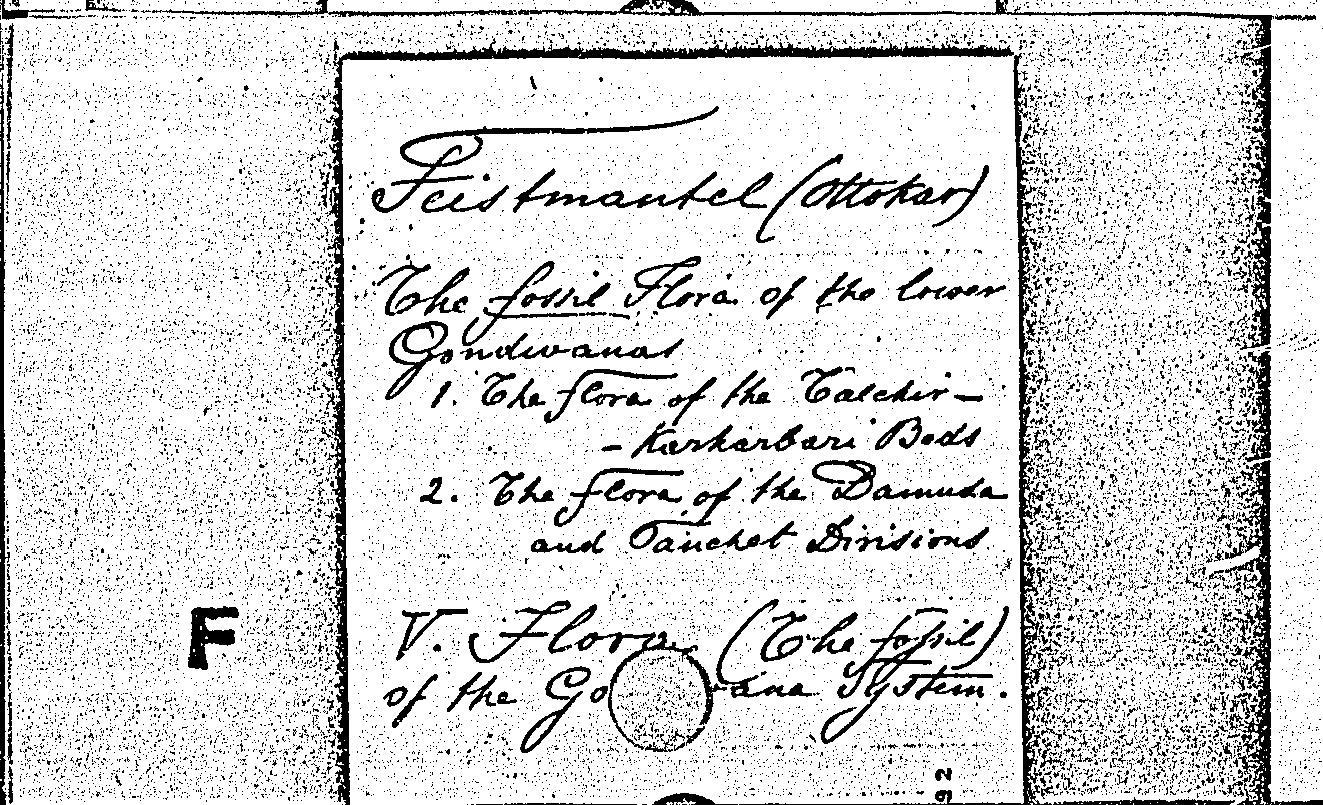 Feistmantel (Ottokar)
The fossil Flora of the lower
Gondwanas
1. The flora of the Talchir —
— Karharbari Beds
2. The flora of the Damuda
and Panchet Divisions
F
V. Flora (The fossil)
of the Go vana System.
92